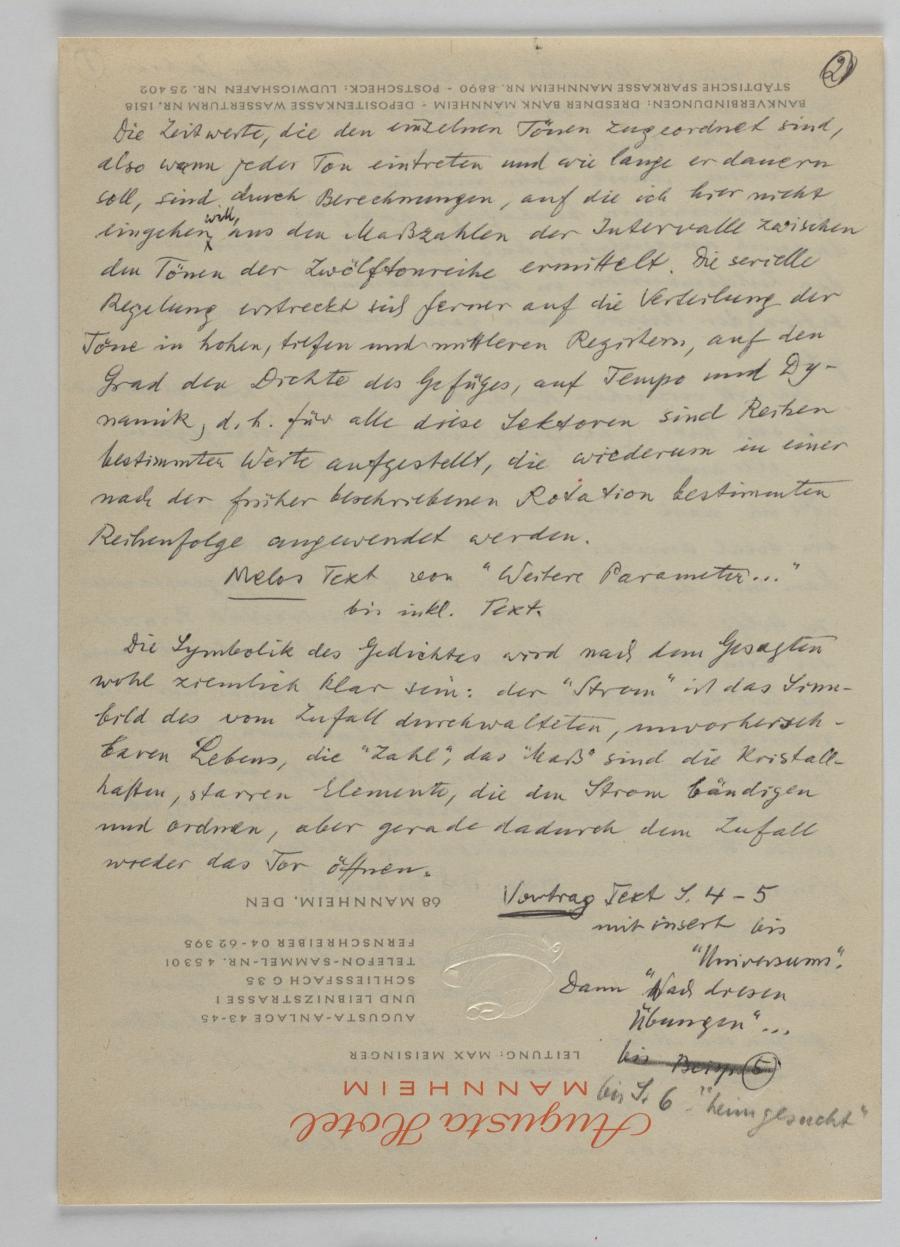 2
STÄDTISCHE SPARKASSE MANNHEIM NR. 8890 - POSTSCHECK: LUDWIGSHAFEN NR. 25402
BANKVERBINDUNGEN: DRESDNER BANK MANNHEIM - DEPOSITENKASSE WASSERTURM NR. 1518
Die Zeitwerte, die den einzelnen Tönen zugeordnet sind,
also wann jeder Ton eintreten und wie lange er dauern
soll, sind durch Berechnungen, auf die ich hier nicht
eingehen will, aus den Maßzahlen der Intervalle zwischen
den Tönen der Zwölftonreihe ermittelt. Die serielle
Regelung erstreckt sich ferner auf die Verteilung der
Töne in hohen, tiefen und mittleren Registern, auf den
Grad der Dichte des Gefüges, auf Tempo und Dy-
namik, d. h. für alle diese Sektoren sind Reihen
bestimmter Werte aufgestellt, die wiederum in einer
nach der früher beschriebenen Rotation bestimmten
Reihenfolge angewendet werden.
Melos Text von "Weitere Parameter..."
bis inkl. Text.
Die Symbolik des Gedichtes wird nach dem Gesagten
wohl ziemlich klar sein: der "Strom" ist das Sinn-
bild des vom Zufall durchwalteten, unvorherseh-
baren Lebens, die "Zahl", das "Maß" sind die Kristall-
haften, starren Elemente, die den Strom bändigen
und ordnen, aber gerade dadurch dem Zufall
wieder das Tor öffnen.
Vortrag Text S. 4 - 5
mit insert bis
"Universums".
Dann "Nach diesen
Übungen"...
bis Beisp. 5
bis S. 6 - "heimgesucht"
68 MANNHEIM, DEN
FERNSCHREIBER 04-62395
TELEFON-SAMMEL-NR. 45301
SCHLIESSFACH G 35
UND LEIBNIZSTRASSE 1
AUGUSTA-ANLAGE 43-45
LEITUNG: MAX MEISINGER
MANNHEIM
Augusta Hotel